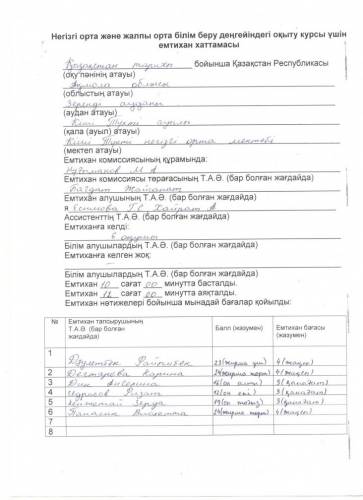 Негізгі орта және жалпы орта білім беру деңгейіндегі оқыту курсы үшін
емтихан хаттамасы
Қазақстан тарихы бойынша Қазақстан Республикасы
(оқу пәнінің атауы)
Ақмола облысы
(облыстың атауы)
Зеренді ауданы
(аудан атауы)
Кіші Түкті ауылы
(қала (ауыл) атауы)
Кіші Түкті негізгі орта мектебі
(мектеп атауы)
Емтихан комиссиясының құрамында:
М А
Емтихан комиссиясы төрағасының Т.А.Ә. (бар болған жағдайда)
Бағдат
Емтихан алушының Т.А.Ә. (бар болған жағдайда)
Есимова Г С Хайрат А
Ассистенттің Т.А.Ә. (бар болған жағдайда)
Емтиханға келді:
6 оқушы
Білім алушылардың Т.А.Ә. (бар болған жағдайда)
Емтиханға келген жоқ:
Білім алушылардың Т.А.Ә. (бар болған жағдайда)
Емтихан 10 сағат 00 минутта басталды.
Емтихан 12 сағат 00 минутта аяқталды.
Емтихан нәтижелері бойынша мынадай бағалар қойылды:
№ Емтихан тапсырушының Т.А.Ә. (бар болған жағдайда) Балл (жазумен) Емтихан бағасы (жазумен)
1 Дәулетбек Райымбек 23 (жиырма үш) 4 (жақсы)
2 Дегтярева Карина 24 (жиырма төрт) 4 (жақсы)
3 Дик Ангелина 16 (он алты) 3 (қанағат)
4 Идрисов Ризат 12 (он екі) 3 (қанағат)
5 Зерде 19 (он тоғыз) 3 (қанағат)
6 Панасюк Виолетта 24 (жиырма төрт) 4 (жақсы)
7
8